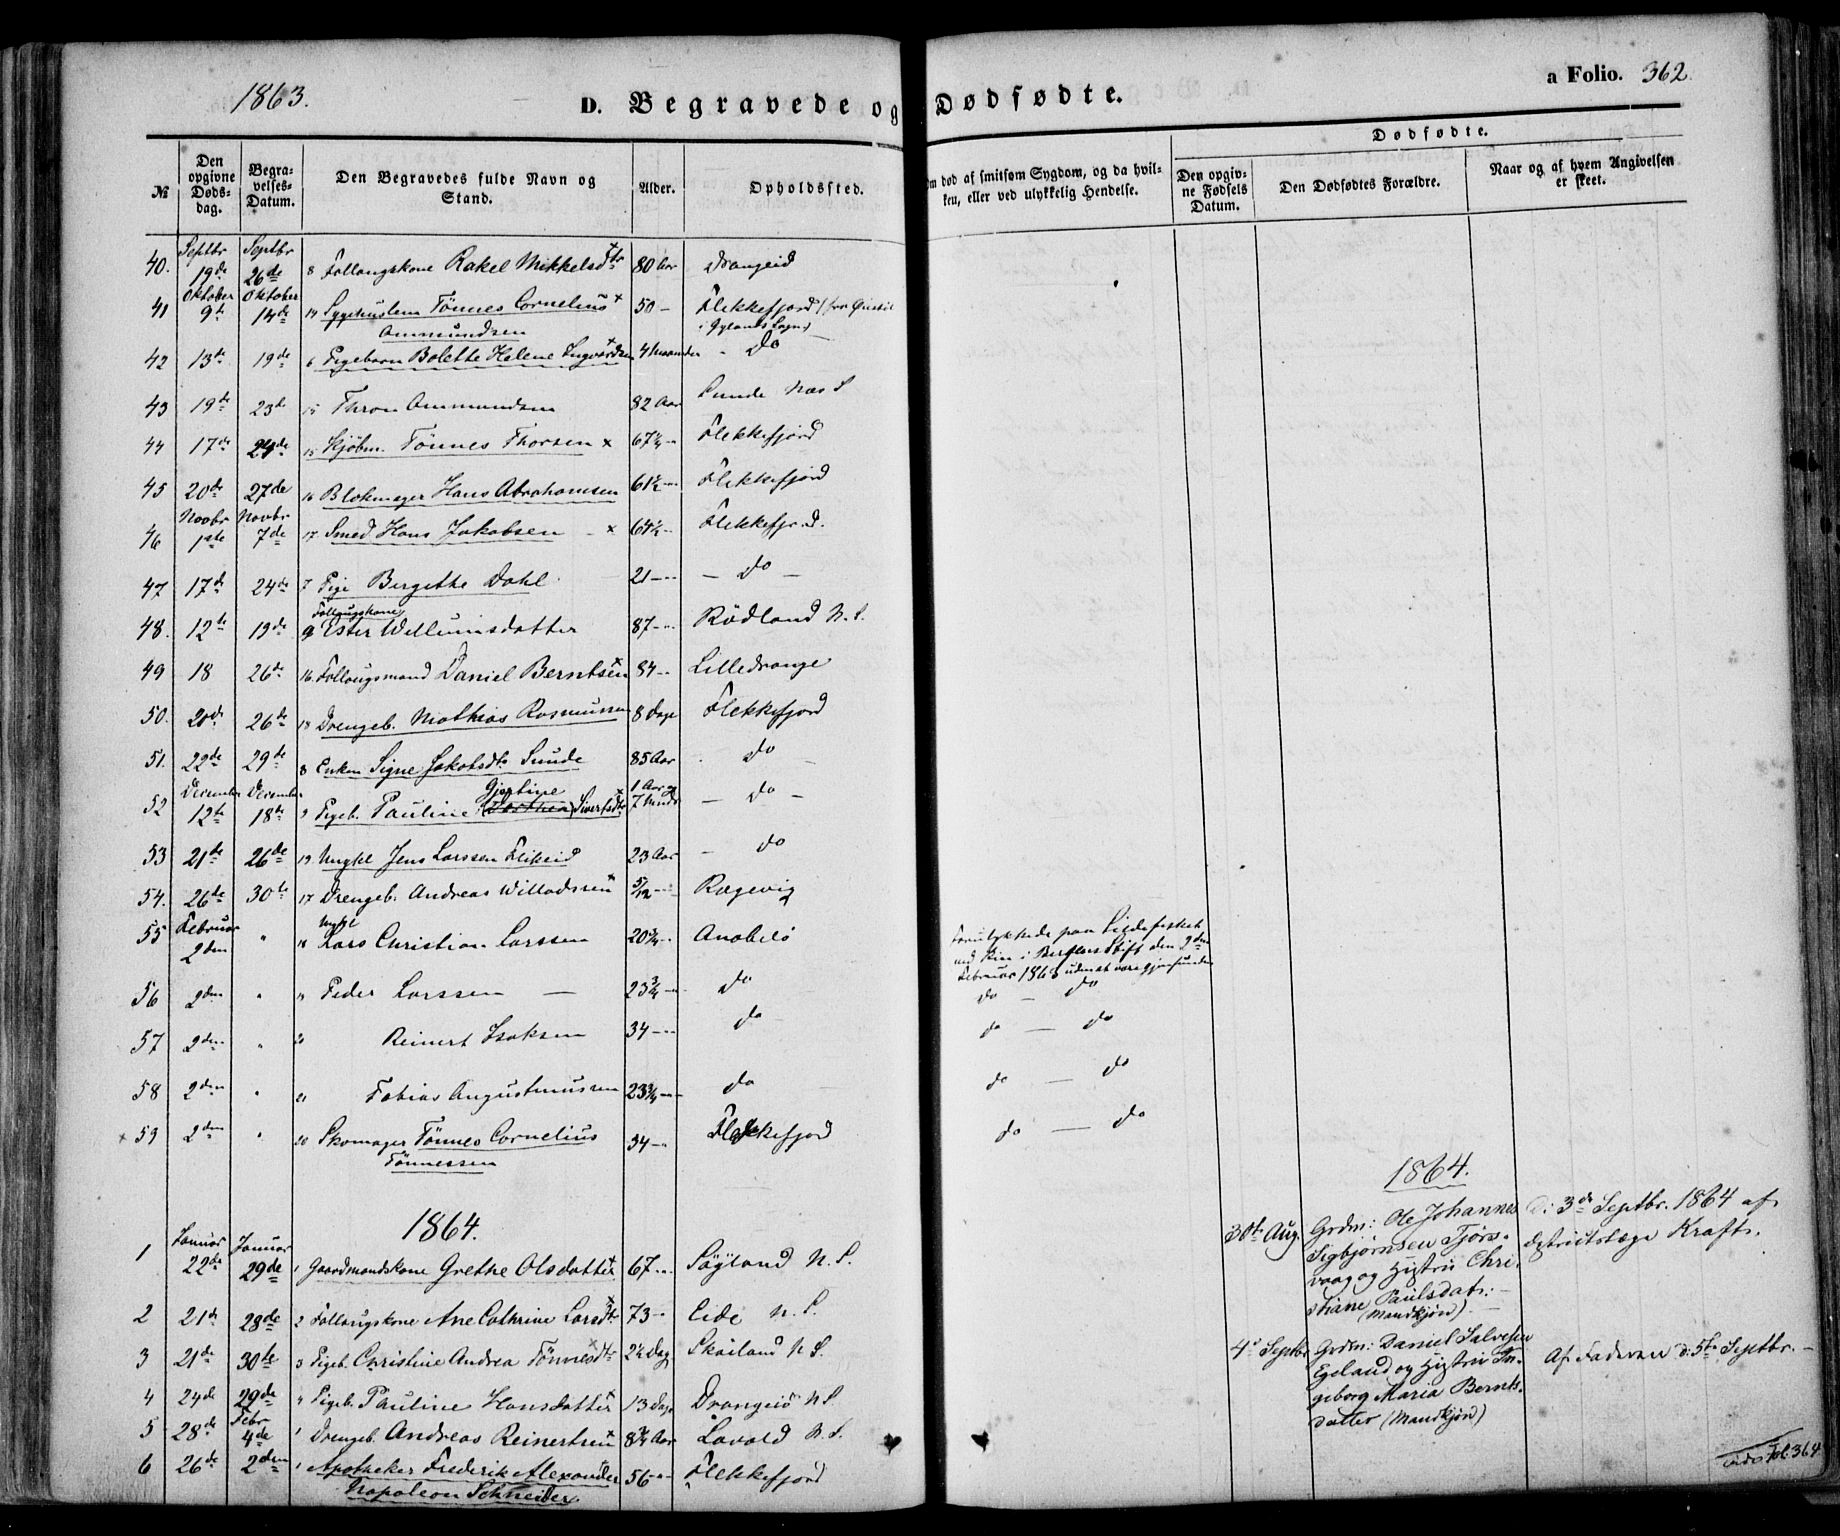 1863.
D. Begravede og Dødfødte.
a Folio. 362.
№
Den opgivne Døds-dag.
Begra-velses-Datum.
Den Begravedes fulde Navn og Stand.
Alder.
Opholdssted.
Om død af smitsom Sygdom, og da hvil-ken, eller ved ulykkelig Hendelse.
Dødfødte.
Den opgiv-ne Fødsels Datum.
Den Dødfødtes Forældre.
Naar og af hvem Angivelsen er skeet.
Septbr Septbr
40. 19de 26de 8 Follougskone Rakel Mikkelsdtr 80 Aar Drangeid
Oktober Oktober
41 9de 14de 14 Tönnes Cornelius 50 – Flekkefjord (fra
Ammundsen i Gylands Sogn)
42 13de 19de 6 Pigebarn Bolette Helene 4 Maaneder – Do
43 19de 23de 15 Thron Ammundsen 82 Aar Sunde Næs S
44 17de 24de 15 Skjöbm. Tönnes Thorsen x 67½ – Flekkefjord
45 20de 27de 16 Blokmager Hans Abrahamsen 61½ – Flekkefjord
Novbr Novbr
46 1ste 7de 17 Smed Hans Jakobsen – x 64½ – Flekkefjord.
47 17de 24de 7 Pige Bergethe Dahl 21 – – Do –
Follougskone
48. 12te 19de 9 Ester Willumsdatter 87 – Rödland N. S.
49 18 26de 16 Follougsmand Daniel Berntsen 84 – Lilledrange
50. 20de 26de 18 Drengeb. Mathias Rasmussen 8 Dage Flekkefjord
51. 22de 29de 8 Enken Signe Jakobsdtr Sunde 85 Aar – Do –
December December Gjertine 1 Aar og
52 12te 18de 9 Pigeb. Pauline Sivertsdtr 7 Mndr – Do –
53 21de 26de 19 Ungkl Jens Larssen Flikeid 23 Aar – Do
54. 26de 30te 17 Drengeb. Andreas Willadssen 5/12 – Rægevig
Februar Ungkl
55 2den " 18 Lars Christian Larssen 20¾ – Anabelö
Forulykkede paa Sildefisket
ved Kin i Bergens Stift den 2den
Februar 1863 uden at være gjenfunden
56 2den " " Peder Larssen – 23¾ – Do do – do
57 2den " 20 Reinert Isaksen 34 – do do – do
58 2den " 21 Tobias Augustinussen 23¾ – do do – do
59 2den " 20 Skomager Tönnes Cornelius 34 – Flekkefjord do – do
Tönnessen
1864.
Januar Januar
1 22de 29de 1 Gaardmandskone Grethe Olsdatter 67 – Söyland N. S.
2 21de 28de 2 Follougskone Ane Cathrine Larsdtr 73 – Eide N. S.
3 21de 30te 3 Pigeb. Christine Andrea Tönnesdtr 2½ Dag Skoiland N S.
4 24de 29de " Pigeb. Pauline Hansdatter 13 Dage Drangeid N S.
Febr
5 28de 4de 1 Drengeb. Andreas Reinertsen 8¾ Aar Lavold N. S.
6 26de 2den 1 Apotheker Frederik Alexander 56 – Flekkefjord
Napoleon Schneider
1864.
30te Aug. Grdm: Ole Johannes
Sigbjørnsen Tjørs-
vaag og Hustru Chri-
stiane Paulsdatr: –
(Mandkjøn). –
D: 3de Septbr. 1864 af
Destrictslæge Kraft.
4de Septbr Grdm: Daniel Salvesen
Egeland og Hustru In-
geborg Maria Bernts-
datter (Mandkjøn)
Af Faderen d: 5te Septbr. –
vide Fol: 364